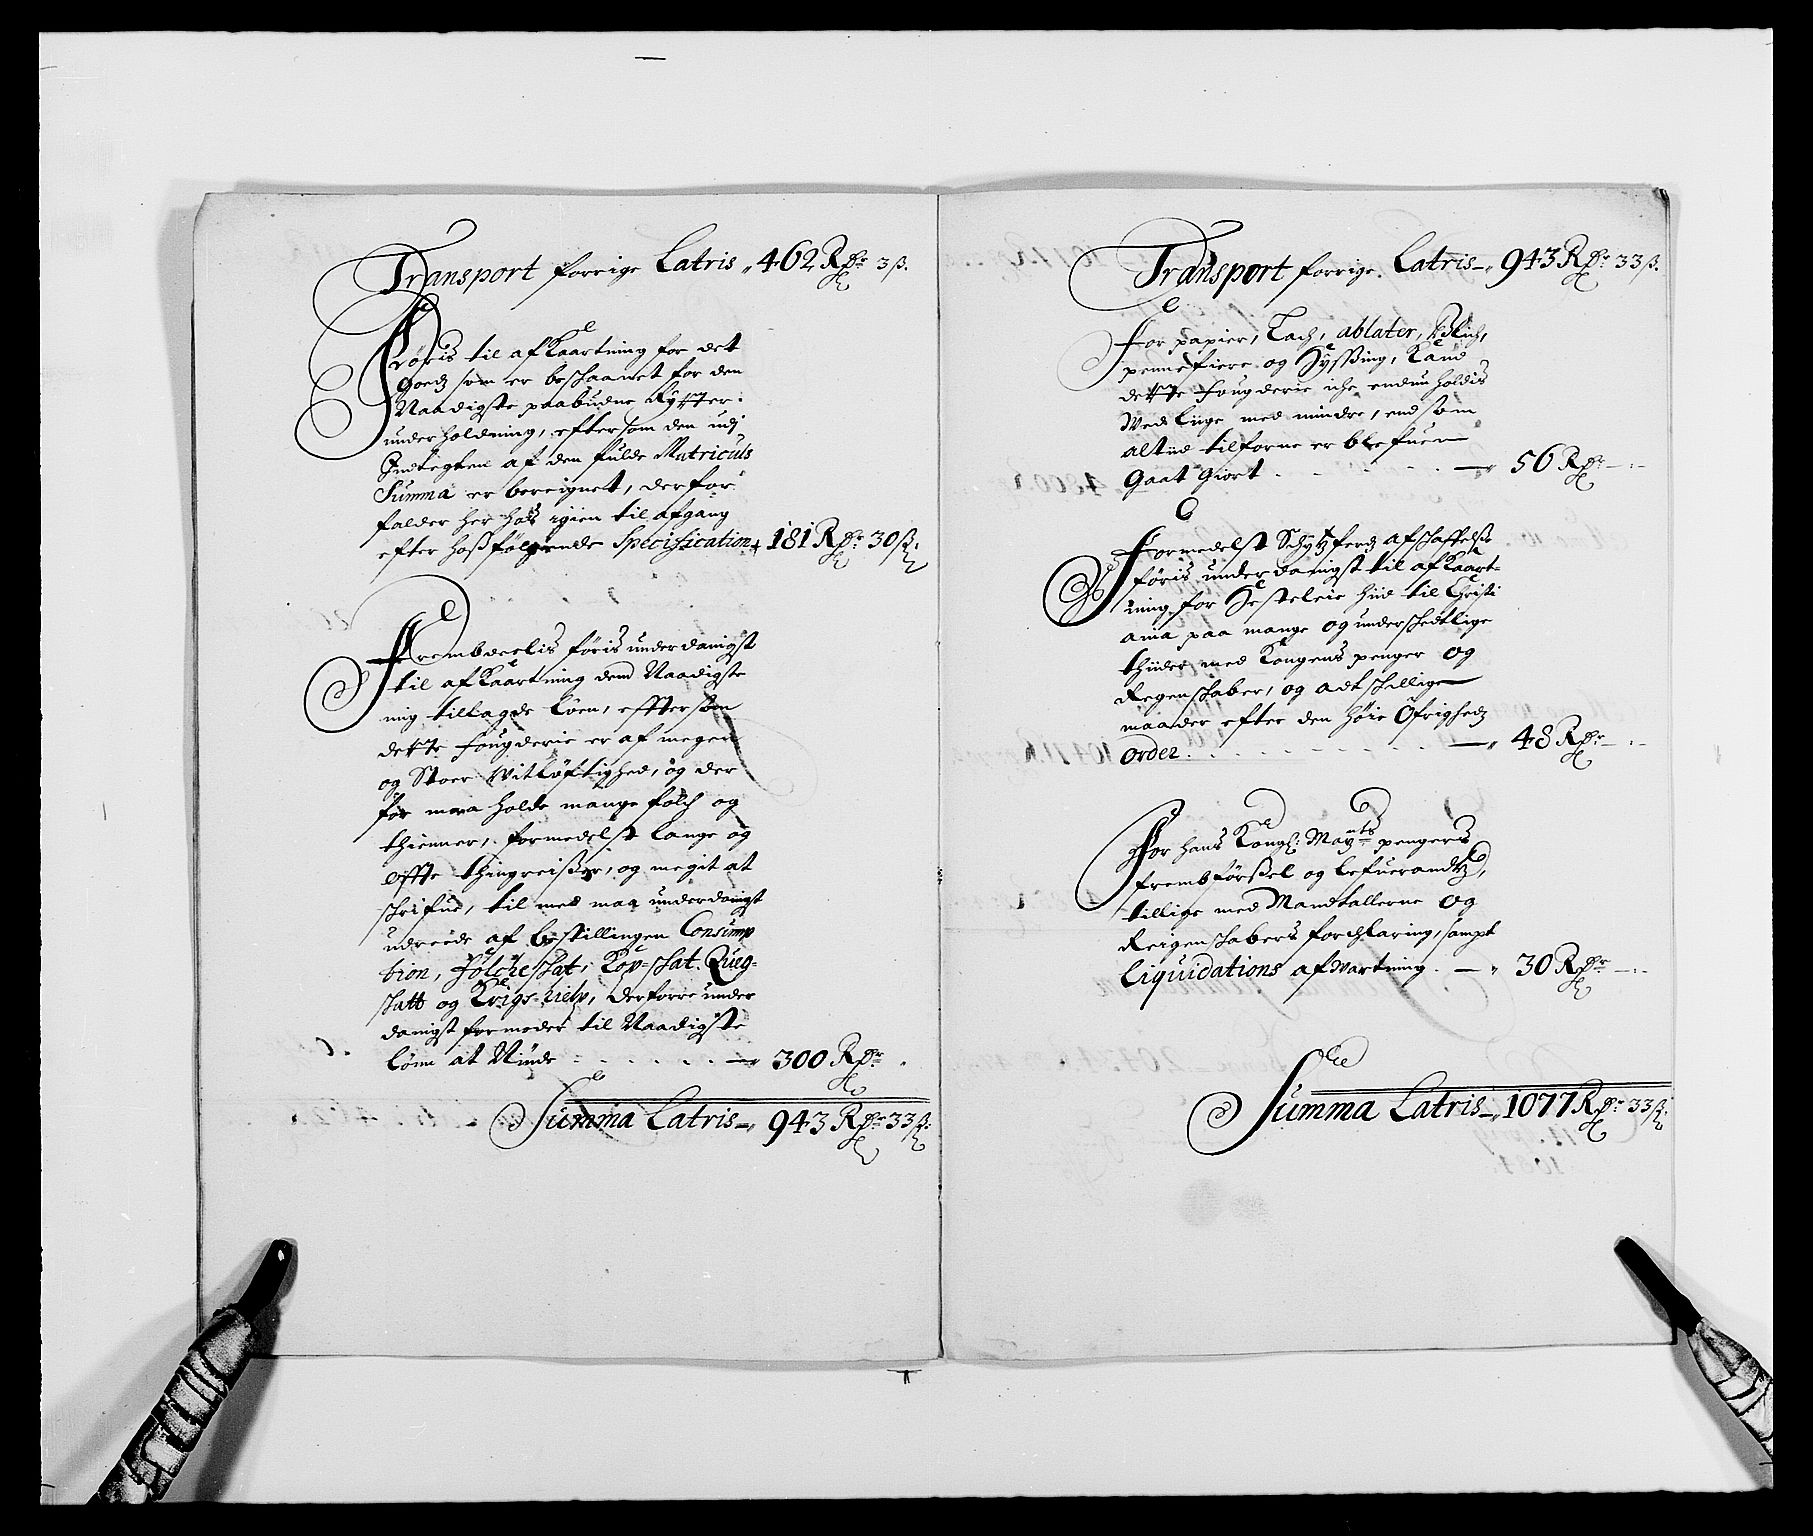 Transport forrige Latris „ 462 Rdr 3 ß.
Føris til afKaartning for det
Goedz som er beschaanet for den
Naadigste paabudne Rytter-
underholdning, eftersom den udj
Indtegten af den fulde Matriculs
Summa er bereignet, derfor
falder her hoß igien til afgang
efter hoßfølgende Specification „ 181 Rdr 30 ß:
Frembdeelis føris underdanigst
til afKaartning dend Naadigste
mig tillagde Løen, effterson
dette fougderie er af megen
og Stoer Vitløftighed, og der
før maa holde mange folch og
thienner, formedelst lange og
offte thingreißer, og megit at
schrifue, til med maa underdanigst
udreede af bestillingen Consump
tion, Folcheskat, Kop-skat. Queg-
skatt og Krigs-hielp, derforre under
danigst formoder til Naadigste
Lønn at Niude — 300 Rdr
Summa Latris — „ 943 Rdr 33 ß:
Transport forrige Latris — „ 943 Rdr 33 ß.
For papier, Lach, ablater, Bleich,
pennefiere og Hyssing, Kand
dette fougderie iche endnu holdis
Ved liige med mindre, end som
altiid tilforne er blefuen
Gaat Giort — 56 Rdr — : —
Formedelst Schydzferdz afschaffelse
føris underdanigst til afKaart-
ning for Hesteleie hiid til Christi
ania paa mange og underschedtlige
thider med Kongens penger og
Regenschaber, og adtschillige
maader efter den Høie Øfrighedz
order — 48 Rdr — : —
For hans Kongl: Mayts pengers
frembførßel og Lefuerandtz,
tillige med Mandtallerne og
Reigenschabers forchlaring, sampt
Liquidations afvartning. — „ 30 Rdr — : —
Summa Latris — „ 1077 Rdr 33 ß: